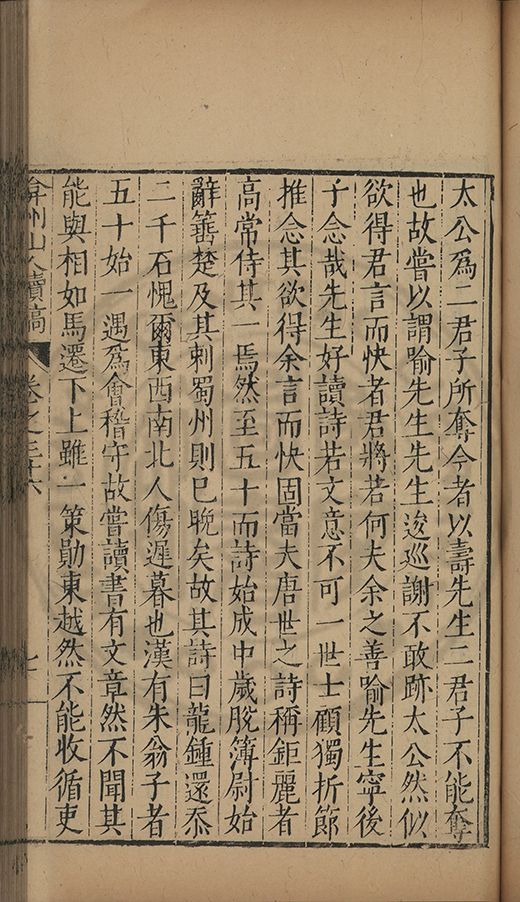 太公爲二君子所奪今者以壽先生二君子不能奪
也故嘗以謂喻先生先生逡巡謝不敢跡太公然似
欲得君言而快者君將若何夫余之善喻先生寧後
子念哉先生好讀詩若文意不可一世士顧獨折節
推念其欲得余言而快固當夫唐世之詩稱鉅麗者
高常侍其一焉然至五十而詩始成中歲脫簿尉始
辭簭楚及其刺蜀州則巳晩矣故其詩曰龍鍾還忝
二千石愧爾東西南北人傷遲暮也漢有朱翁子者
五十始一遇爲會稽守故嘗讀書有文章然不聞其
能與相如馬遷下上雖一策勛東越然不能收循吏
弇州山人續稿
卷之三十六
七